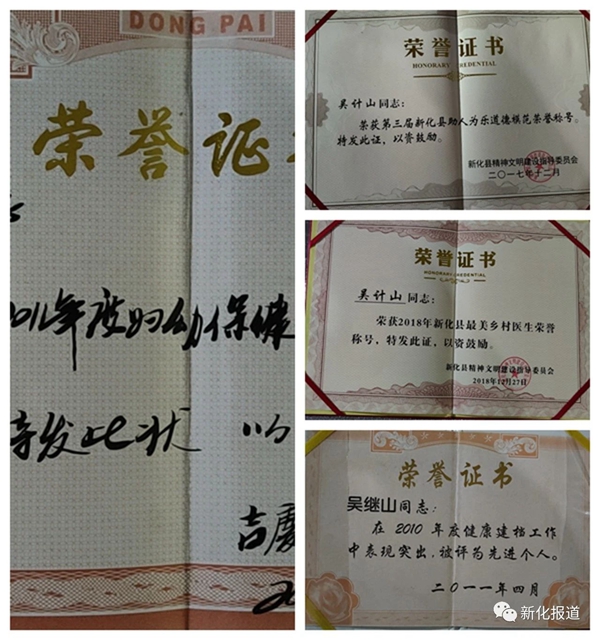 DONG PAI
荣誉证
2011年度妇幼保健
特发此状 以
吉庆
荣誉证书
HONORARY CREDENTIAL
吴计山同志：
荣获第三届新化县助人为乐道德模范荣誉称号。
特发此证，以资鼓励。
新化县精神文明建设指导委员会
二〇一七年十二月
荣誉证书
HONORARY CREDENTIAL
吴计山 同志：
荣获2018年新化县最美乡村医生荣誉
称号，特发此证，以资鼓励。
新化县精神文明建设指导委员会
2018年12月27日
荣誉证书
吴继山同志：
在 2010 年度健康建档工作
中表现突出，被评为先进个人。
二〇一一年四月
新化报道